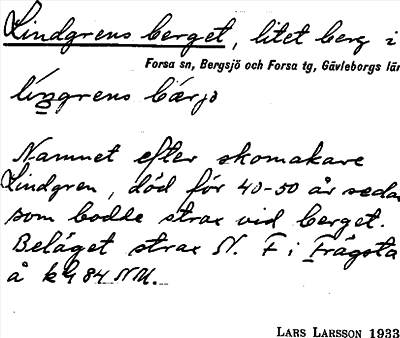 Lindgrens berget, litet berg i
Forsa sn, Bergsjö och Forsa tg, Gävleborgs län
língrens bærjə
Namnet efter skomakare
Lindgren, död för 40-50 år sedan
som bodde strax vid berget.
Beläget strax N. F i Frägsta
å kq 84 NM.
LARS LARSSON 1933